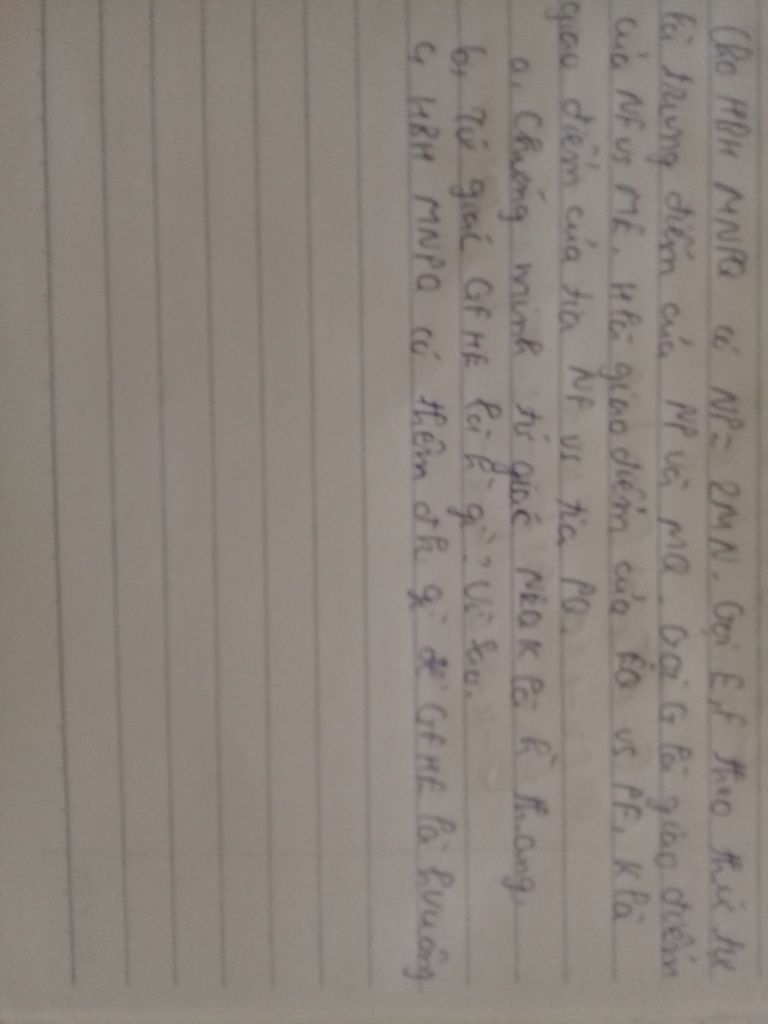 Cho HBH MNPQ có NP = 2MN. Gọi E, F theo thứ tự
là trung điểm của NP và MQ. Gọi G là giao điểm
của NF vs ME. H là giao điểm của EQ vs PF, K là
giao điểm của tia NF vs tia PQ.
a, Chứng minh tứ giác NEQK là h thang.
b, Tứ giác GFHE là h gì? Vì sao.
c, HBH MNPQ có thêm đk gì để GFHE là h vuông